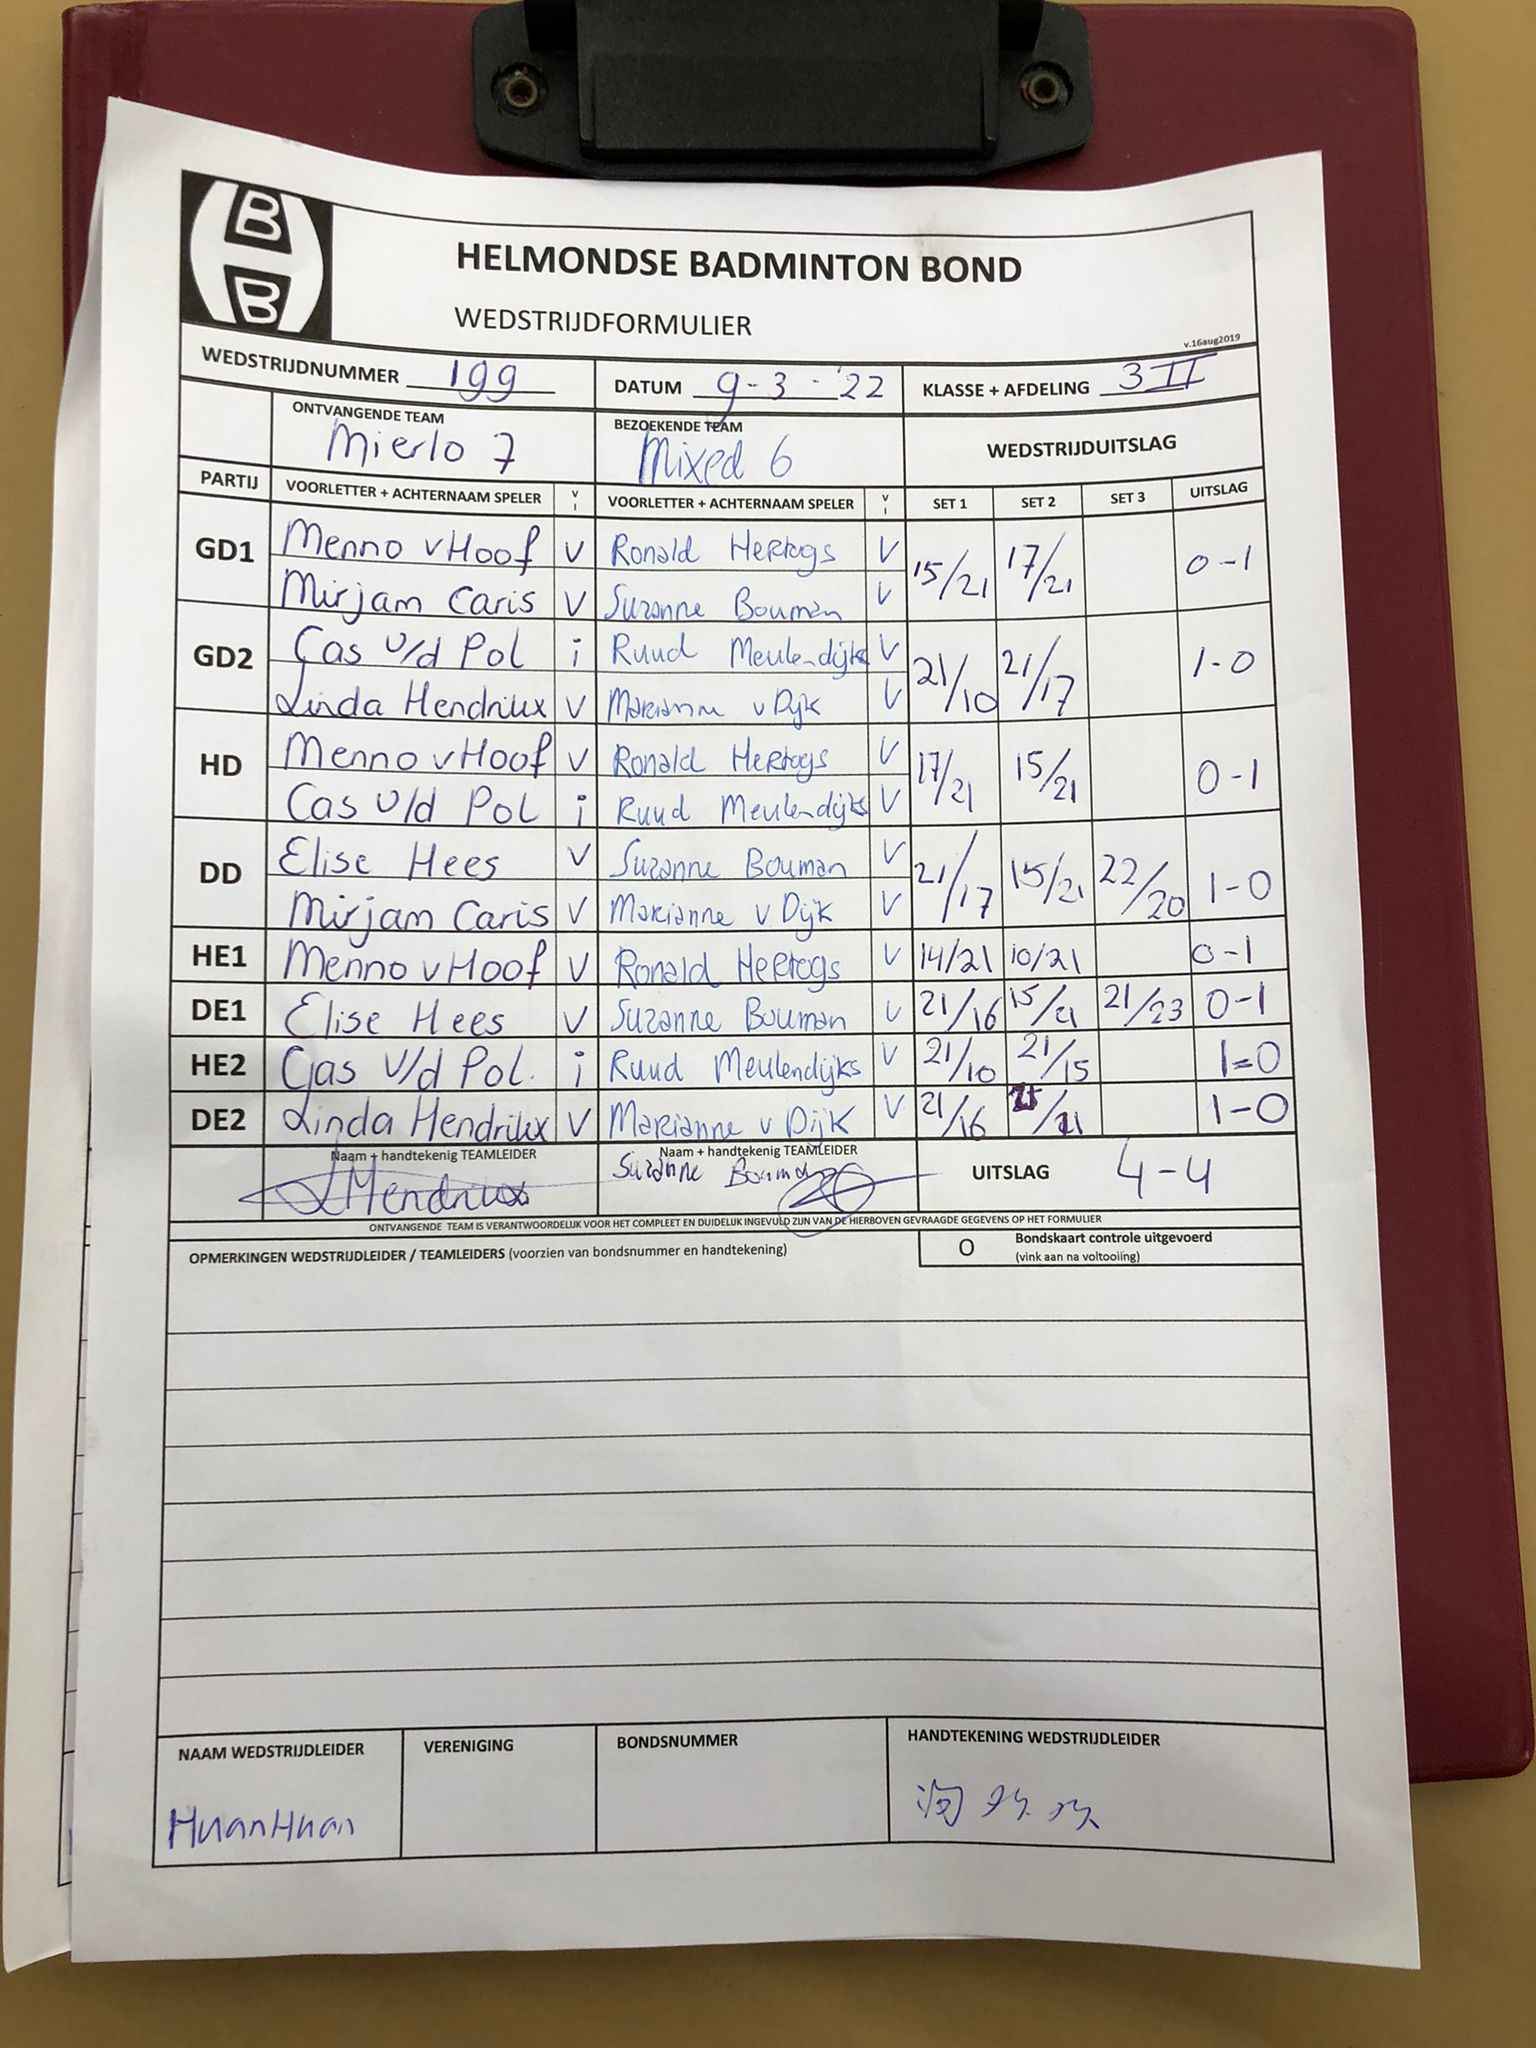 B
B
HELMONDSE BADMINTON BOND
WEDSTRIJDFORMULIER
v.16aug2019
WEDSTRIJDNUMMER 199 DATUM 9-3-'22 KLASSE + AFDELING 3 II
ONTVANGENDE TEAM BEZOEKENDE TEAM WEDSTRIJDUITSLAG
Mierlo 7 Mixed 6
PARTIJ VOORLETTER + ACHTERNAAM SPELER V I VOORLETTER + ACHTERNAAM SPELER V I SET 1 SET 2 SET 3 UITSLAG
GD1 Menno vHoof V Ronald Hertogs V 15/21 17/21 0-1
Mirjam Caris V Suzanne Bouman V
GD2 Cas v/d Pol i Ruud Meulendijks V 21/10 21/17 1-0
Linda Hendrikx V Marianne v Dijk V
HD Menno vHoof V Ronald Hertogs V 17/21 15/21 0-1
Cas v/d Pol i Ruud Meulendijks V
DD Elise Hees V Suzanne Bouman V 21/17 15/21 22/20 1-0
Mirjam Caris V Marianne v Dijk V
HE1 Menno vHoof V Ronald Hertogs V 14/21 10/21 0-1
DE1 Elise Hees V Suzanne Bouman V 21/16 15/21 21/23 0-1
HE2 Cas v/d Pol. i Ruud Meulendijks V 21/10 21/15 1=0
DE2 Linda Hendrikx V Marianne v Dijk V 21/16 1-0
Naam + handtekenig TEAMLEIDER Naam + handtekenig TEAMLEIDER UITSLAG 4-4
LHendrikx Suzanne Bouman
ONTVANGENDE TEAM IS VERANTWOORDELIJK VOOR HET COMPLEET EN DUIDELIJK INGEVULD ZIJN VAN DE HIERBOVEN GEVRAAGDE GEGEVENS OP HET FORMULIER
OPMERKINGEN WEDSTRIJDLEIDER / TEAMLEIDERS (voorzien van bondsnummer en handtekening) O Bondskaart controle uitgevoerd
(vink aan na voltooiing)
NAAM WEDSTRIJDLEIDER VERENIGING BONDSNUMMER HANDTEKENING WEDSTRIJDLEIDER
HuanHuan